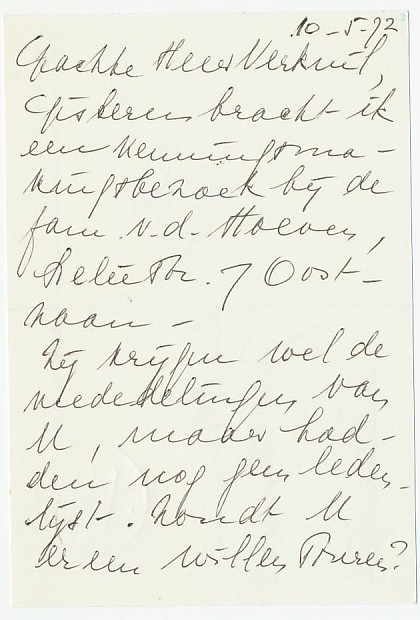 10-5-72
Geachte Heer Verkuil,
Gisteren bracht ik
een kennisma-
kingsbezoek bij de
fam. v.d. Hoeven,
7 Oost-
zaan -
Zij krijgen wel de
mededelingen van
U, maar had-
den nog geen leden-
lijst. Zoudt U
er een willen sturen?